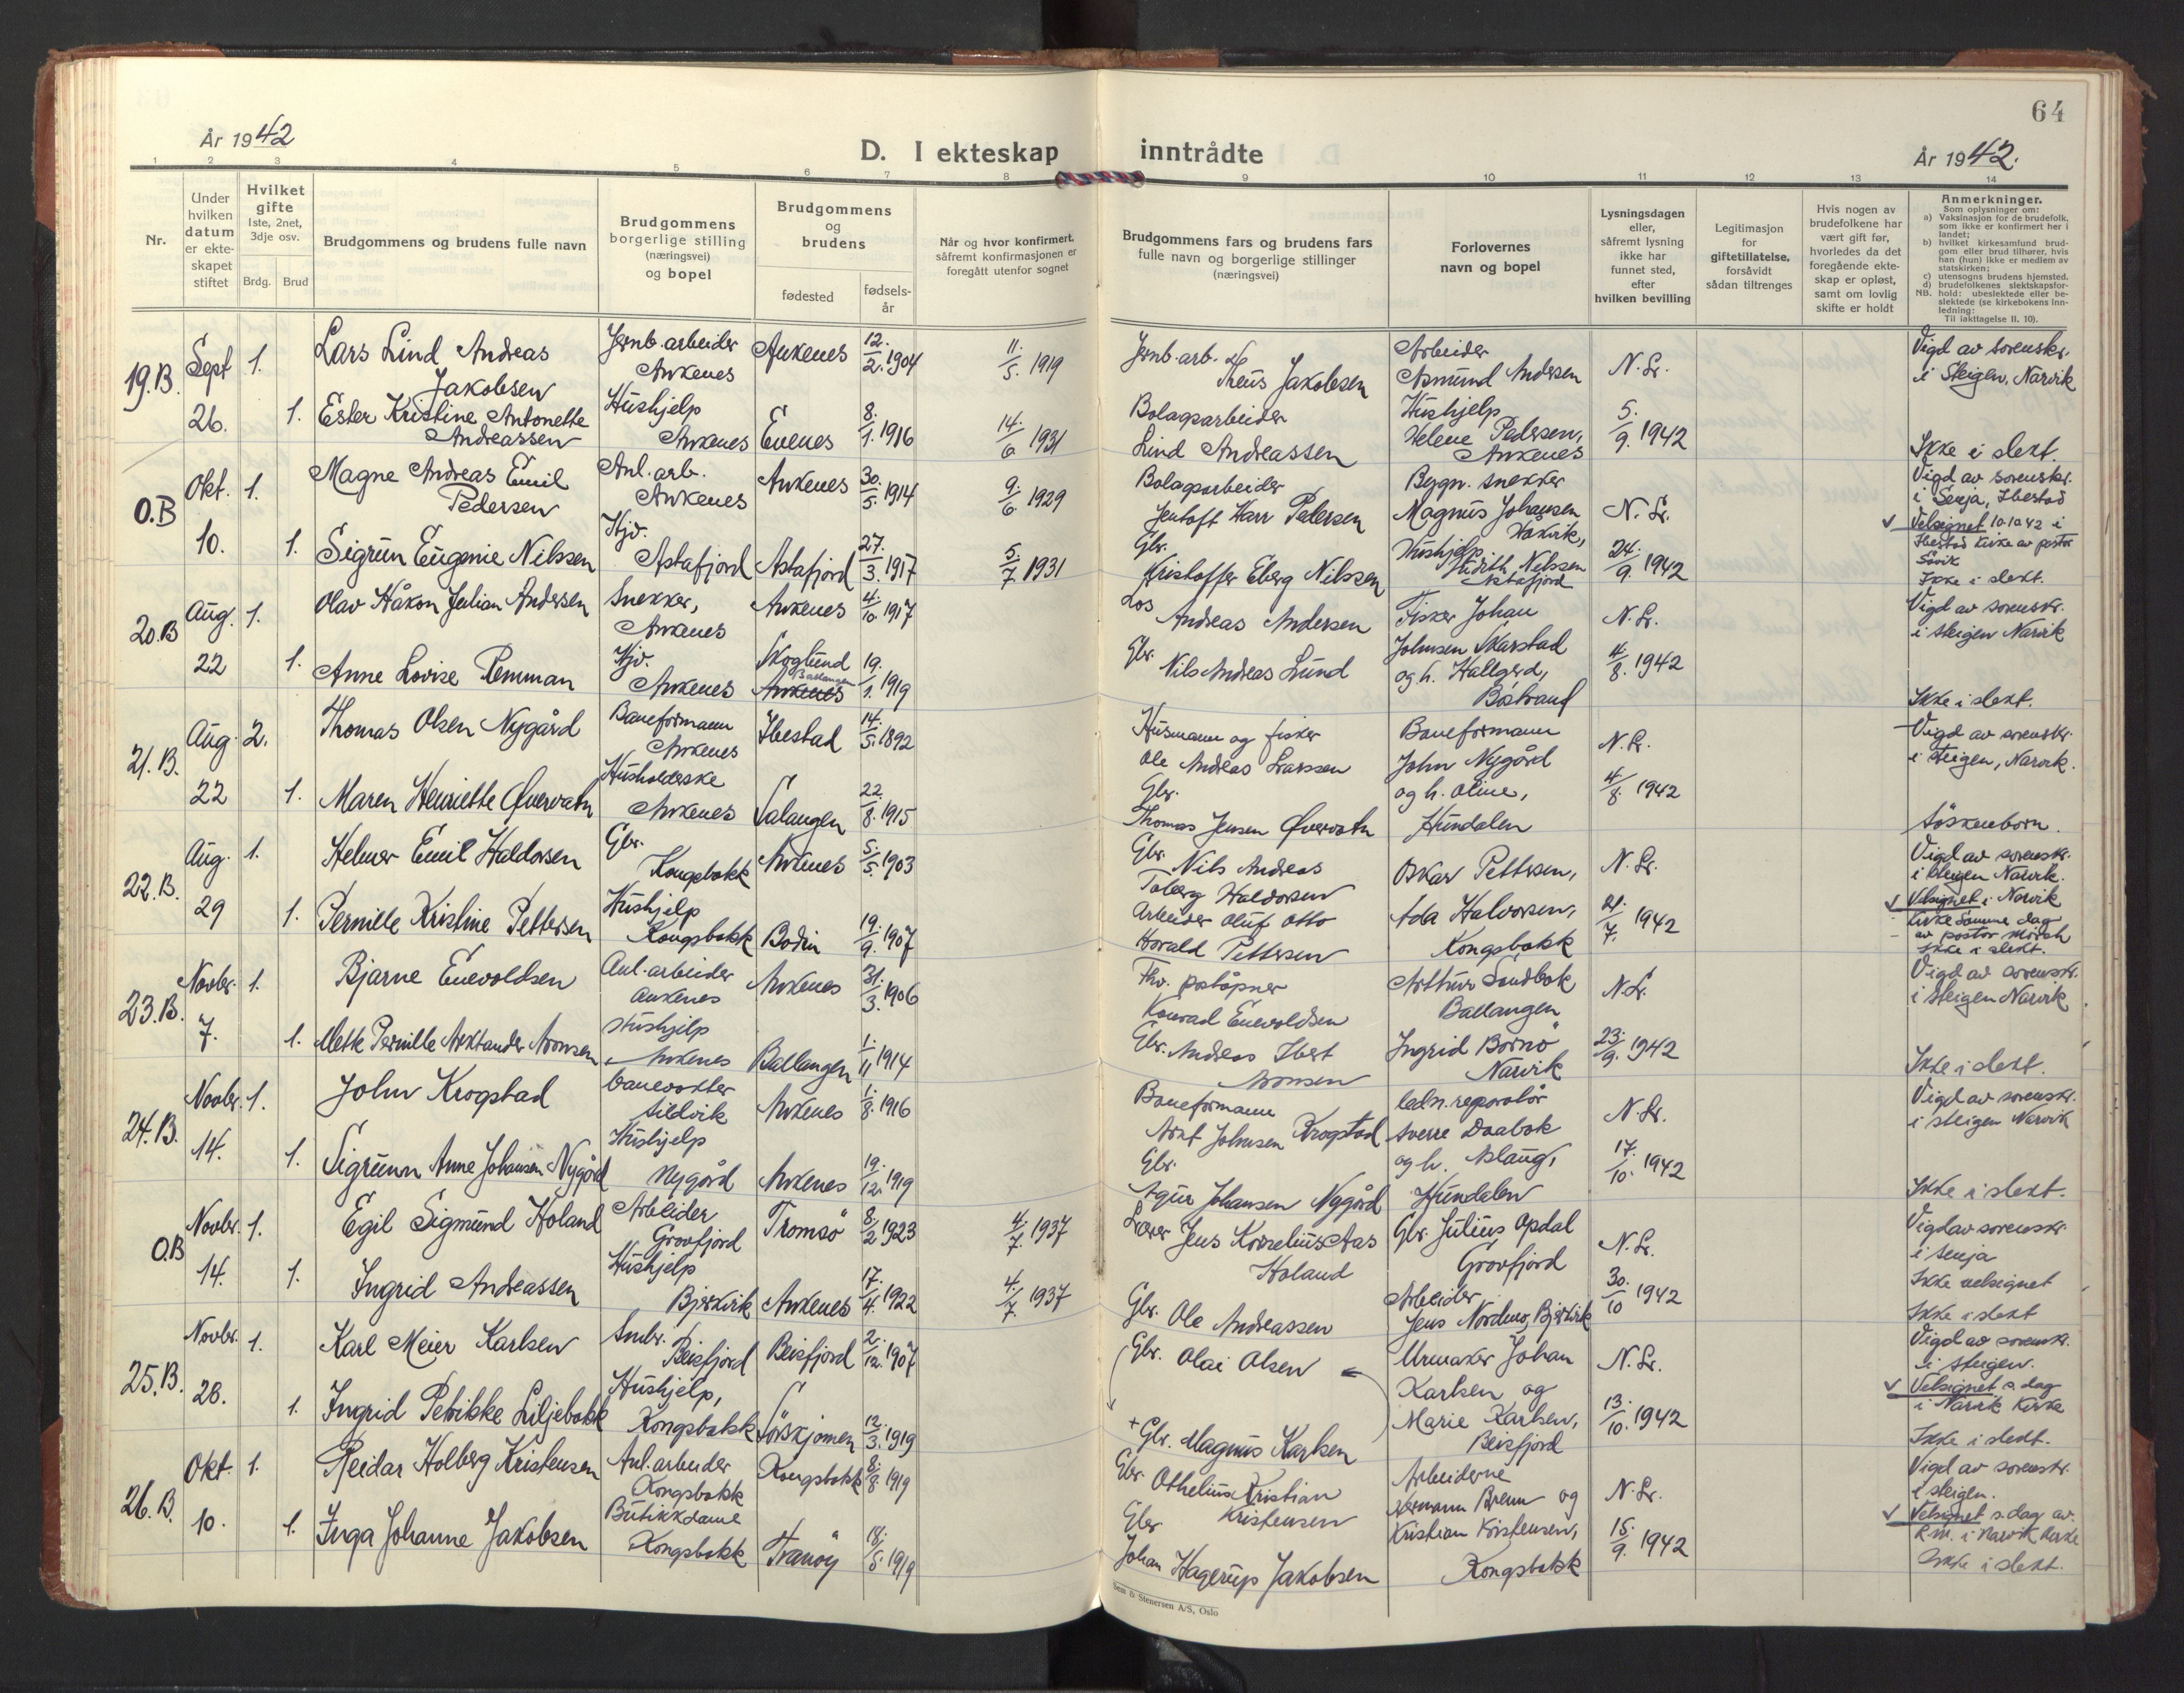 64
År 1942
D. I ekteskap inntrådte
År 1942.
1 2 3 4 5 6 7 8 9 10 11 12 13 14
Nr.
Under hvilken datum er ekteskapet stiftet
Hvilket gifte
1ste, 2net, 3dje osv.
Brdg. Brud
Brudgommens og brudens fulle navn
Brudgommens borgerlige stilling (næringsvei) og bopel
Brudgommens og brudens
fødested
fødselsår
Når og hvor konfirmert, såfremt konfirmasjonen er foregått utenfor sognet
Brudgommens fars og brudens fars fulle navn og borgerlige stillinger (næringsvei)
Forlovernes navn og bopel
Lysningsdagen eller, såfremt lysning ikke har funnet sted, efter hvilken bevilling
Legitimasjon for giftetillatelse, forsåvidt sådan tiltrenges
Hvis nogen av brudefolkene har vært gift før, hvorledes da det foregående ekteskap er opløst, samt om lovlig skifte er holdt
Anmerkninger.
Som oplysninger om:
a) Vaksinasjon for de brudefolk, som ikke er konfirmert her i landet;
b) hvilket kirkesamfund brudgom eller brud tilhører, hvis han (hun) ikke er medlem av statskirken;
c) utensogns brudens hjemsted.
d) brudefolkenes slektskapsforhold: ubeslektede eller beslektede (se kirkebokens innledning:
NB. Til iakttagelse II. 10).
19.B. Sept 26. 1. Lars Lind Andreas Jakobsen Jernb.arbeider Ankenes Ankenes 12/2. 1904 11/5. 1919 Jernb.arb. Theus Jakobsen Arbeider Asmund Andersen N. Lr. Vigd av sorenskr. i Steigen, Narvik
1. Ester Kristine Antonette Andreassen Hushjelp Ankenes Evenes 8/1. 1916 14/6 1931 Bolagsarbeider Lind Andreassen Hushjelp Helene Pedersen, Ankenes 5/9. 1942 Ikke i slekt.
O.B Okt. 10. 1. Magne Andreas Emil Pedersen Anl. arb. Ankenes Ankenes 30/5. 1914 9/6. 1929 Bolagsarbeider Jentoft Harr Pedersen Bygn. snekker Magnus Johansen N. Lr. Vigd av sorenskr. i Senja, Ibestad
1. Sigrun Eugenie Nilssen Hjv. Astafjord Astafjord 27/3. 1917 5/7. 1931 Gbr. Kristoffer Eberg Nilssen Hushjelp Judith Nilssen Astafjord 24/9. 1942 Velsignet 10.10.42 i Ibestad kirke av pastor Ikke i slekt.
20.B Aug. 22 1. Olav Håkon Julian Andersen Snekker, Ankenes Ankenes 4/10. 1917 Los Andreas Andersen Fisker Johan Johnsen Skarstad N. Lr. Vigd av sorenskr. i Steigen Narvik
1. Anne Lovise Remman Hjv. Ankenes Skoglund Ballangen Ankenes 19/1. 1919 Gbr. Nils Andreas Lund og h. Hallgerd, Bøstrand 4/8. 1942 Ikke i slekt.
21.B. Aug. 22 2. Thomas Olsen Nygård Baneformann Ankenes Ibestad 14/5. 1892 Husmann og fisker Ole Andreas Larssen Baneformann John Nygård N. Lr. Vigd av sorenskr. i Steigen, Narvik.
1. Maren Henriette Øvervatn Husholderske Ankenes Salangen 22/8. 1915 Gbr. Thomas Jensen Øvervatn og h. Oline, Hundalen 4/8. 1942 Søskenborn.
22.B. Aug. 29 1. Helmer Emil Haldorsen Gbr. Kongsbakk Ankenes 5/5. 1903 Gbr. Nils Andreas Toberg Haldorsen Oskar Pettersen, N. Lr. Vigd av sorenskr. i Steigen Narvik.
1. Pernille Kristine Pettersen Hushjelp Kongsbakk Bodin 19/9. 1907 Arbeider Oluf Otto Harald Pettersen Ada Halvorsen, Kongsbakk 21/7. 1942 Velsignet i Narvik kirke samme dag av pastor Mørch Ikke i slekt.
23.B. Novbr. 7. 1. Bjarne Enevoldsen Anl.arbeider Ankenes Ankenes 31/3. 1906 Fhv. poståpner Konrad Enevoldsen Arthur Sandbak Ballangen N. Lr. Vigd av sorenskr. i Steigen Narvik
1. Mette Pernille Arktander Aronsen Hushjelp Ankenes Ballangen 1/11 1914 Gbr. Andreas Ibert Aronsen Ingrid Bornø Narvik 23/9. 1942 Ikke i slekt.
24.B. Novbr. 14. 1. John Krogstad banevokter Sildvik Ankenes 1/8. 1916 Baneformann Arnt Johnsen Krogstad ledn.reparatør Sverre Daabak N. Lr. Vigd av sorenskr. i Steigen Narvik
1. Sigrunn Anne Johansen Nygård Hushjelp Nygård Ankenes 19/12. 1919 Gbr. Agur Johansen Nygård og h. Aslaug, Hundalen 17/10. 1942 Ikke i slekt.
O.B Novbr. 14. 1. Egil Sigmund Holand Arbeider Grovfjord Tromsø 8/2 1923 4/7. 1937 Lærer Jens Kornelius Aas Holand Gbr. Julius Opdal Grovfjord N. Lr. Vigd av sorenskr i Senja Ikke velsignet
1. Ingrid Andreassen Hushjelp Bjerkvik Ankenes 17/4. 1922 4/7. 1937 Gbr. Ole Andreassen Arbeider Jens Nordmo, Bjerkvik 30/10 1942 Ikke i slekt
25.B. Novbr. 28. 1. Karl Meier Karlsen Smbr. Beisfjord Beisfjord 2/12. 1907 Gbr. Olai Olsen Urmaker Johan Karlsen og N. Lr. Vigd av sorenskr. i Steigen.
1. Ingrid Petrikke Liljebakk Hushjelp, Kongsbakk Sørskjomen 12/3. 1919 + Gbr. Magnus Karlsen Marie Karlsen, Beisfjord 13/10. 1942 Velsignet s. dag i Narvik kirke Ikke i slekt.
26.B. Okt. 10. 1. Reidar Holberg Kristensen Anl.arbeider Kongsbakk Kongsbakk 8/8. 1919 Gbr. Othelius Kristian Kristensen Arbeiderne Hermann Brenn og N. Lr. Vigd av sorenskr. i Steigen.
1. Inga Johanne Jakobsen Butikkdame Kongsbakk Tranøy 18/5 1919 Gbr Johan Hagerup Jakobsen Kristian Kristensen, Kongsbakk 15/9. 1942 Velsignet s. dag av R.M. i Narvik kirke Ikke i slekt.
Sem & Stenersen A/S, Oslo